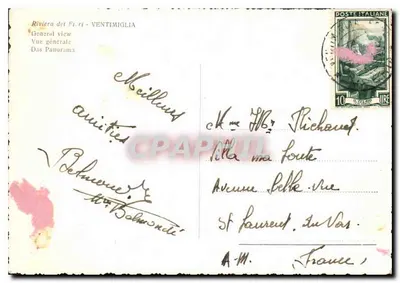 Riviera dei Fiori - VENTIMIGLIA
General view
Vue générale
Das Panorama
POSTE ITALIANE
10 LIRE
Meilleures
amitiés
Mme Richaud
Villa ma
Avenue Belle-Vue
St Laurent du Var
A-M. France
CPARAMA